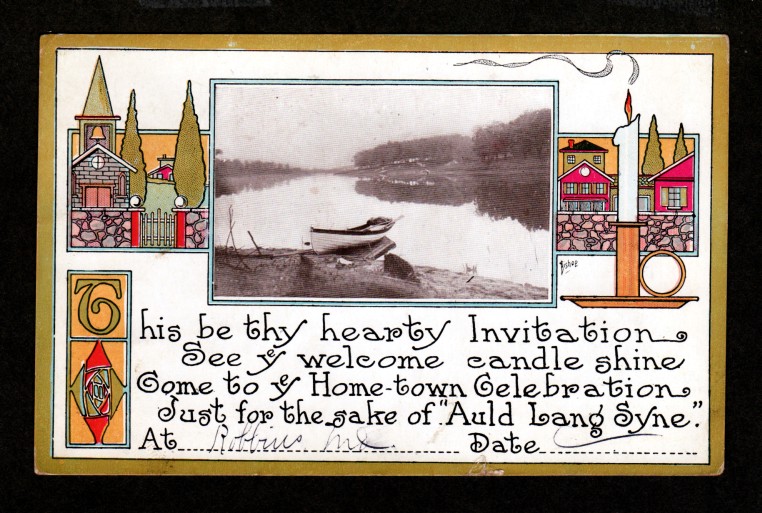 This be thy hearty Invitation
See ye welcome candle shine
Come to ye Home-town Celebration
Just for the sake of "Auld Lang Syne."
At Robbins Date